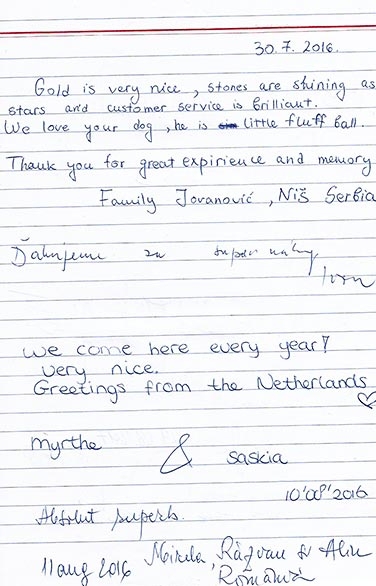 30.7.2016.
Gold is very nice, stones are shining as
stars and customer service is brilliant.
We love your dog, he is little fluff ball.
Thank you for great expirience and memory
Family Jovanović, Niš Serbia
Ďakujeme za super
We come here every year!
very nice.
Greetings from the Netherlands
myrthe & saskia
10'08'2016
Absolut superb.
11 aug 2016 Mirela, Răzvan & Alin
România